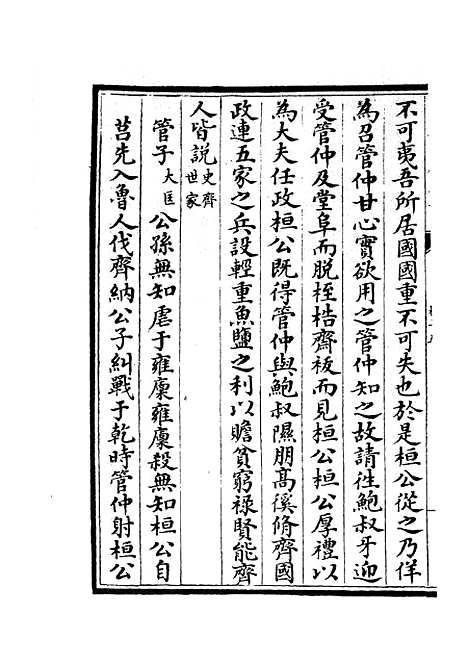 不可夷吾所居國國重不可失也於是桓公從之乃佯
為召管仲甘心實欲用之管仲知之故請往鮑叔牙迎
受管仲及堂阜而脫桎梏齋祓而見桓公桓公厚禮以
為大夫任政桓公既得管仲與鮑叔隰朋髙徯脩齊國
政連五家之兵設輕重魚鹽之利以贍貧窮禄賢能齊
人皆說史齊世家
管子大匡公孫無知虐于雍廩雍廩殺無知桓公自
莒先入魯人伐齊納公子糾戰于乾時管仲射桓公